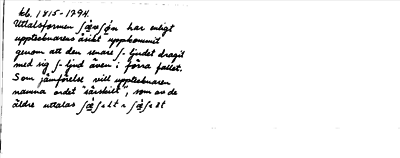 kb. 1815-1794.
Uttalsformen har enligt
upptecknarens åsikt uppkommit
genom att den senare ʃ-ljudet dragit
med sig ʃ-ljud även i förra fallet.
Som jämförelse vill upptecknaren
nämna ordet "särskilt", som av de
äldre uttalas